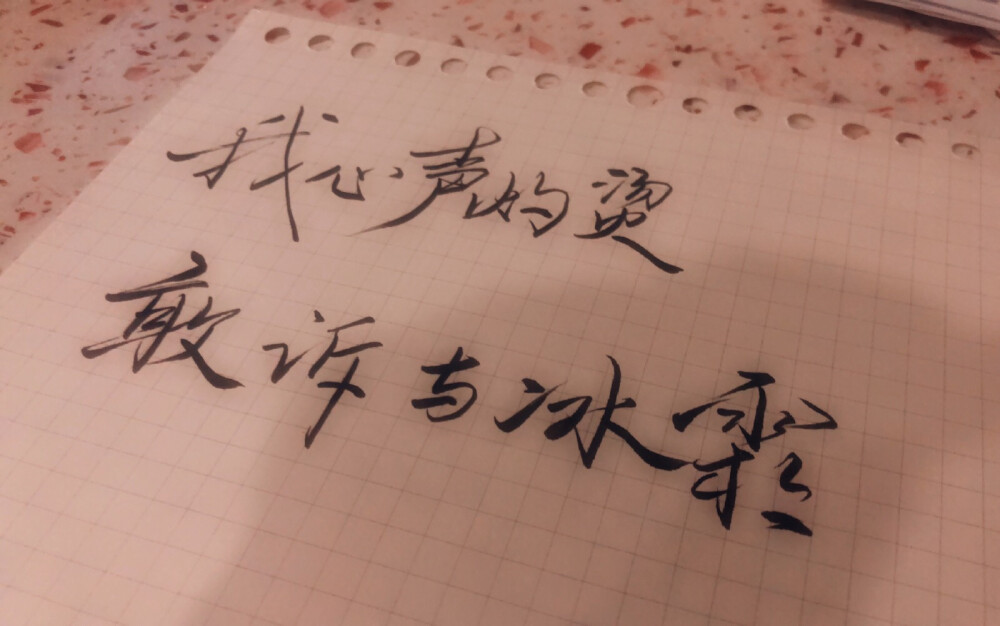 我心声的烫
敢诉与冰霜